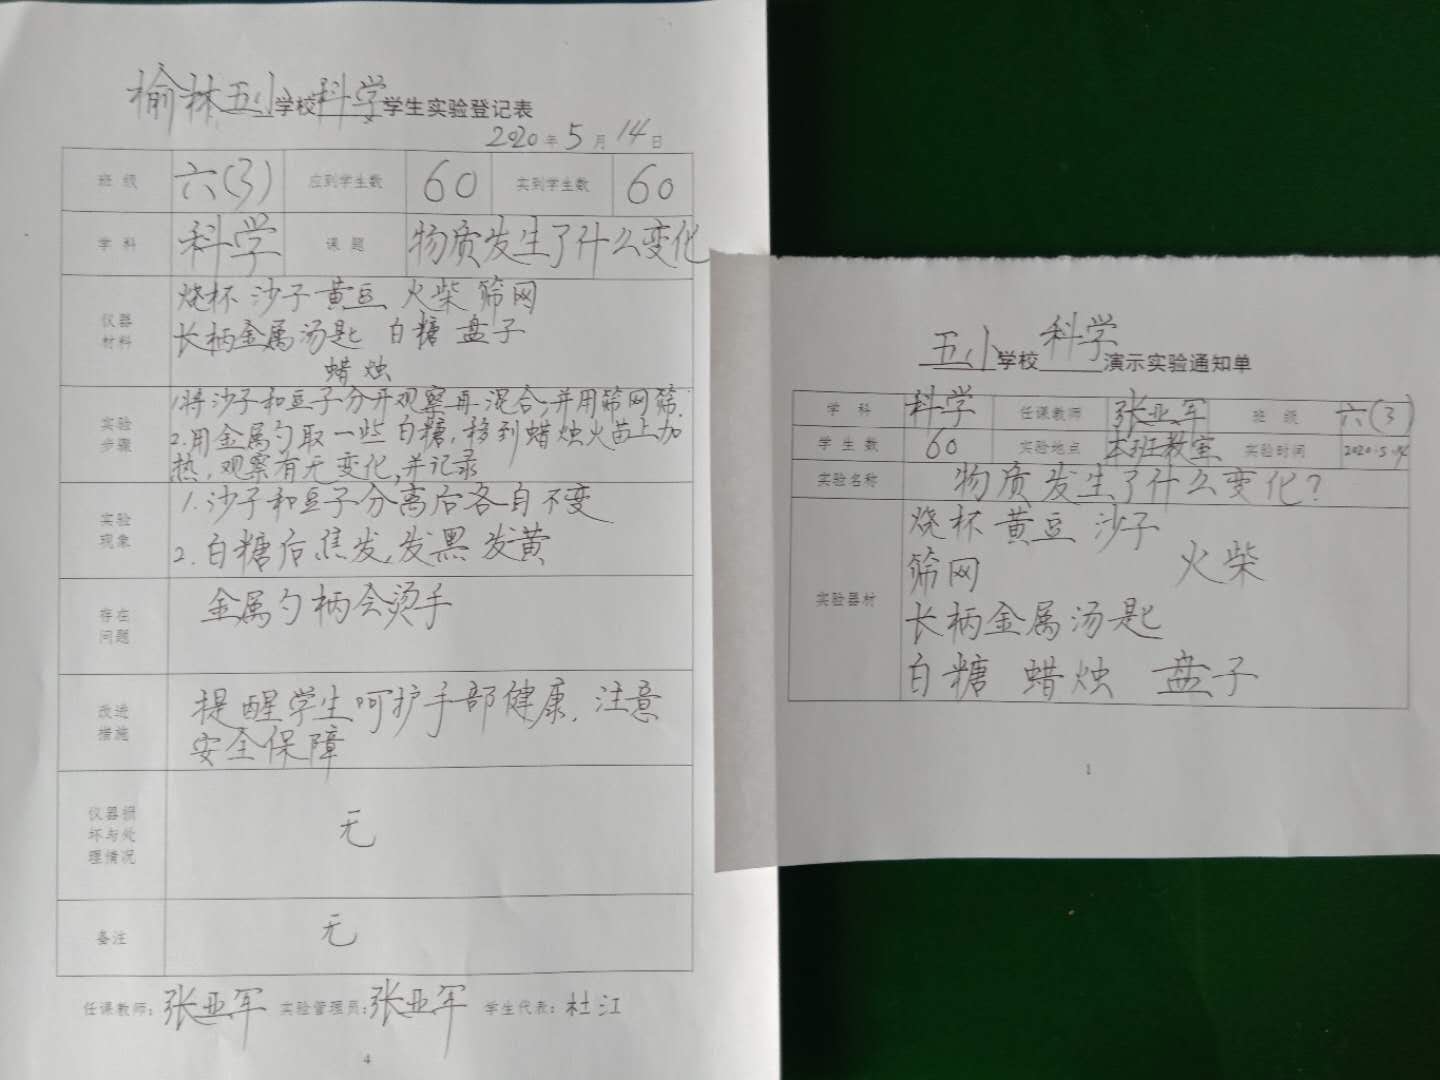 榆林五小学校科学学生实验登记表
2020年5月14日
班 级 六(3) 应到学生数 60 实到学生数 60
学 科 科学 课 题 物质发生了什么变化
仪器
材料
烧杯 沙子 黄豆 火柴 筛网
长柄金属汤匙 白糖 盘子
蜡烛
实验
步骤
1.将沙子和豆子分开观察再混合,并用筛网筛.
2.用金属勺取一些白糖,移到蜡烛火苗上加
热,观察有无变化,并记录
实验
现象
1.沙子和豆子分离后各自不变
2.白糖后焦发,发黑发黄
存在
问题
金属勺柄会烫手
改进
措施
提醒学生呵护手部健康,注意
安全保障
仪器损
坏与处
理情况
无
备注
无
任课教师:张亚军 实验管理员:张亚军 学生代表:杜江
4
五小学校科学演示实验通知单
学 科 科学 任课教师 张亚军 班 级 六(3)
学生数 60 实验地点 本班教室 实验时间 2020.5.14
实验名称 物质发生了什么变化?
实验器材
烧杯 黄豆 沙子
筛网 火柴
长柄金属汤匙
白糖 蜡烛 盘子
1